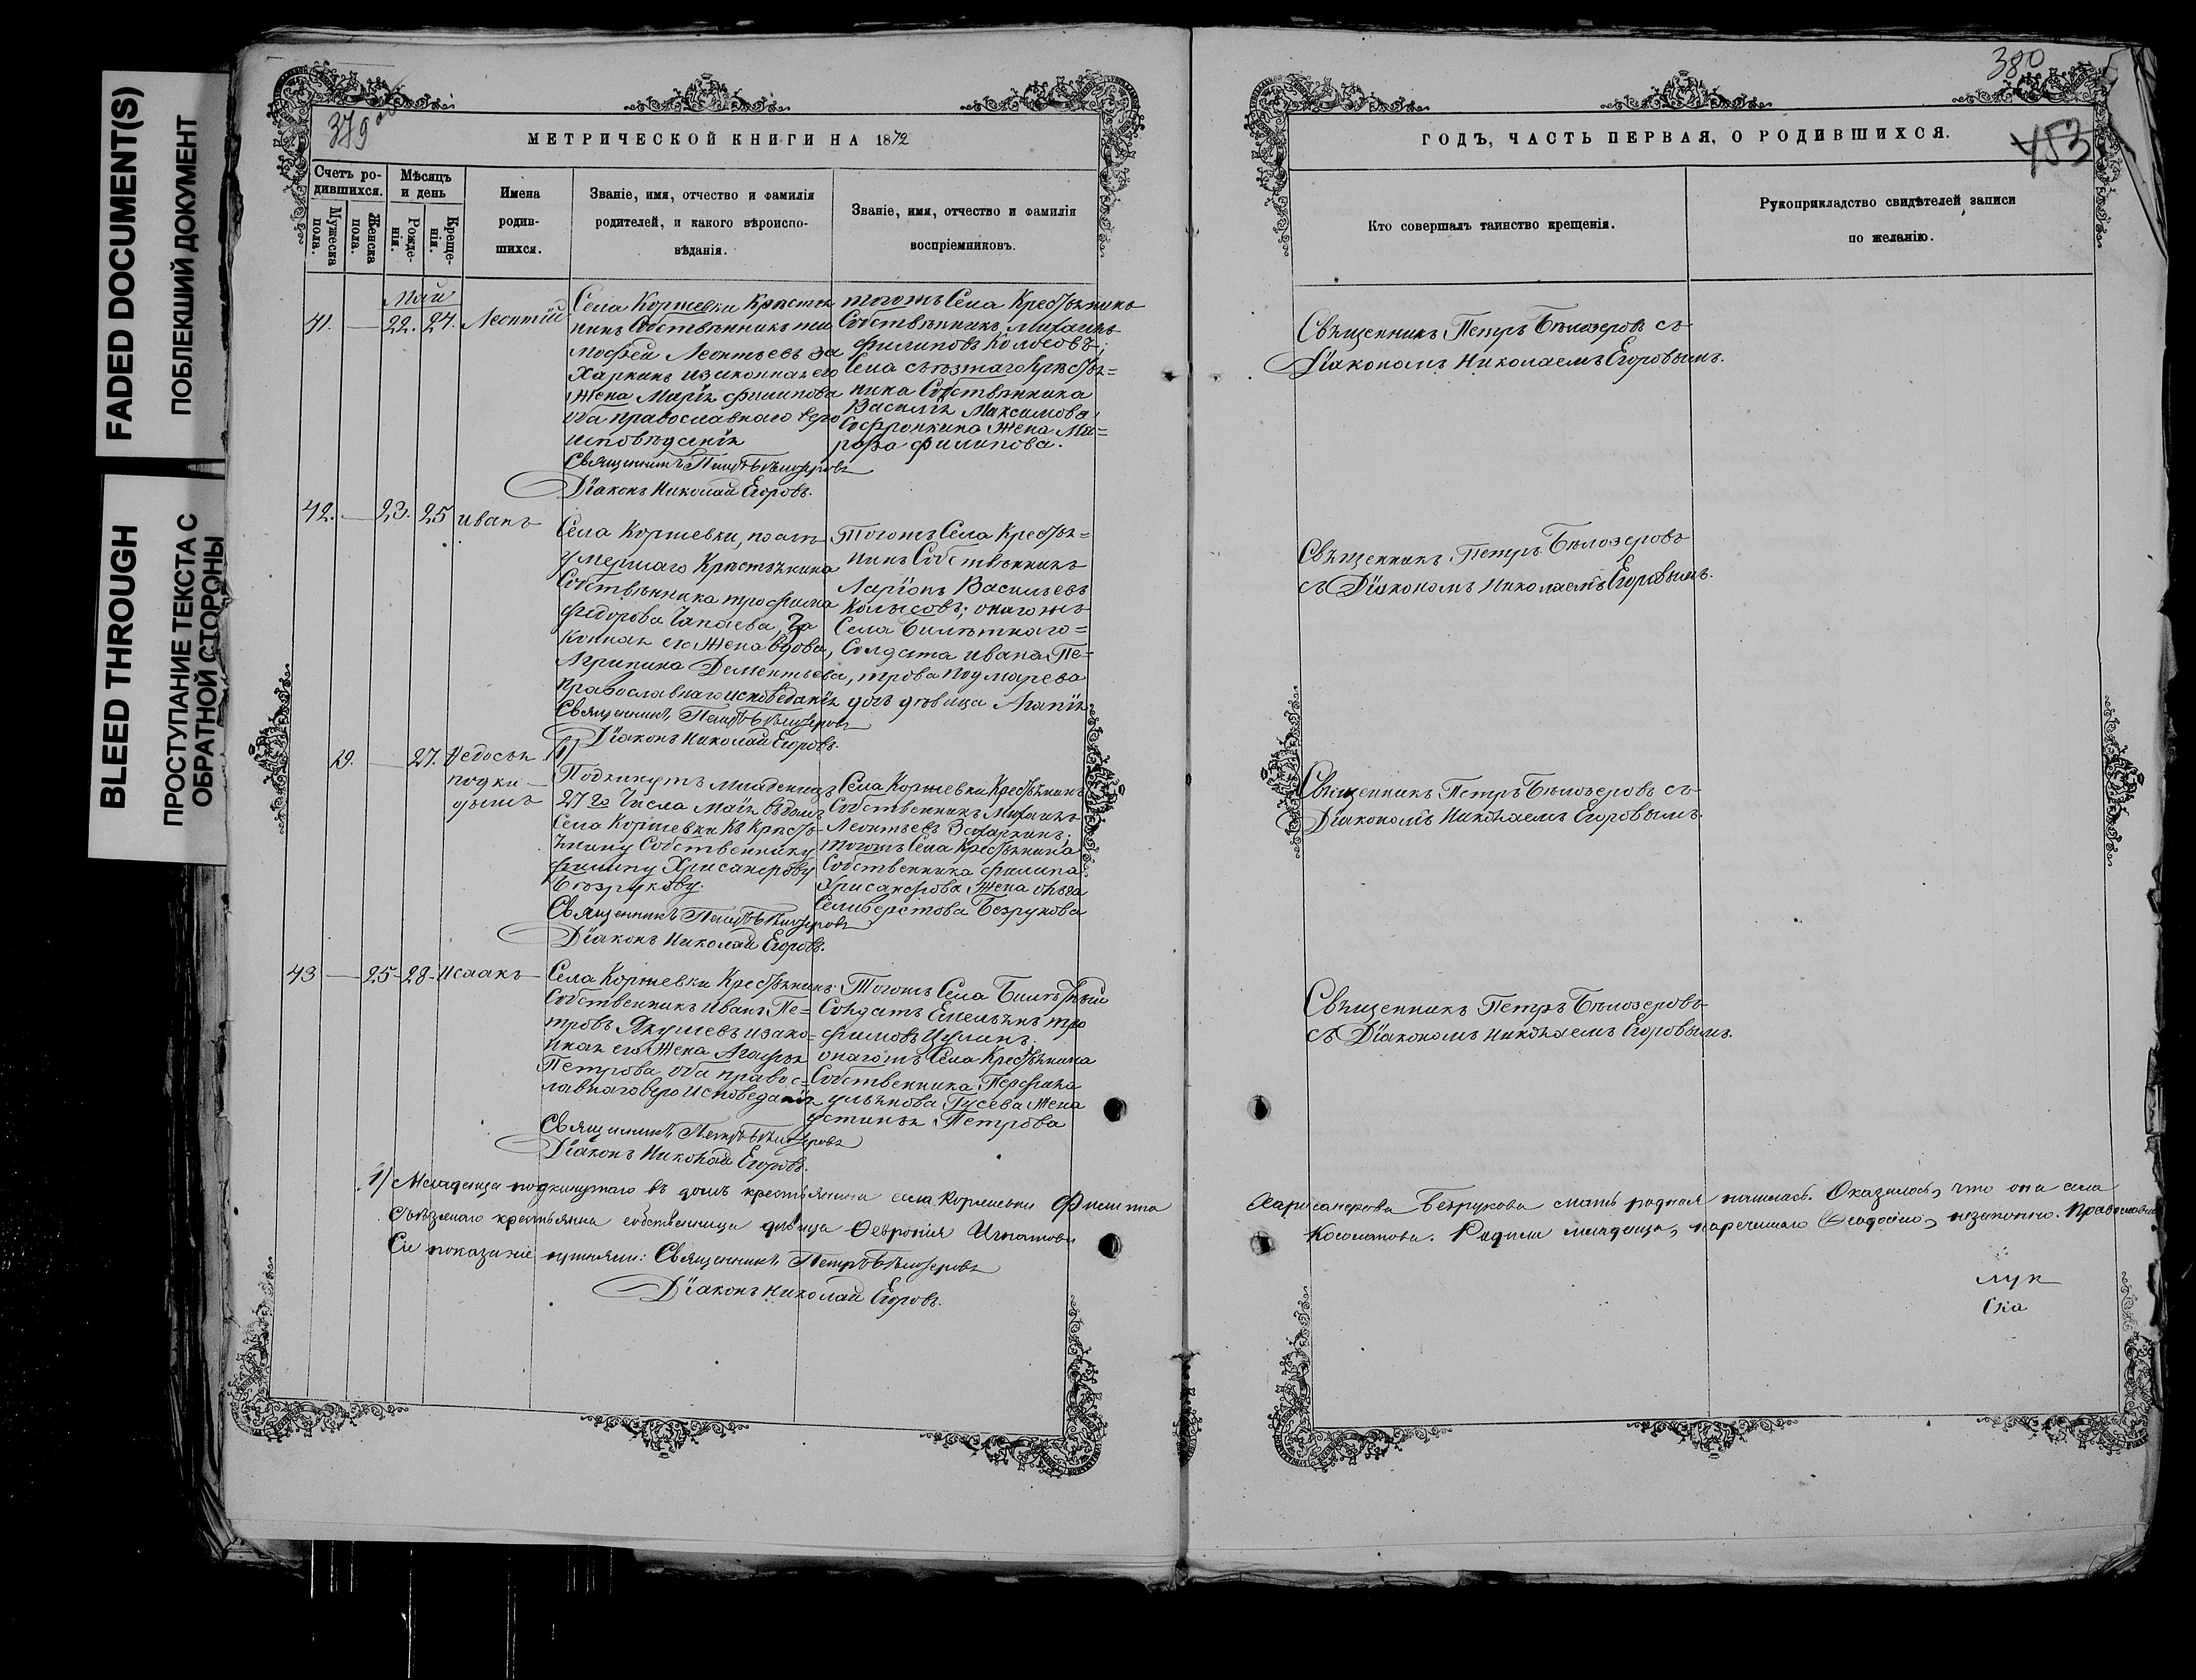 FADED DOCUMENT(S)
ПОБЛЕКШИЙ ДОКУМЕНТ
BLEED THROUGH
ПРОСТУПАНИЕ ТЕКСТА С
ОБРАТНОЙ СТОРОНЫ
379 об
МЕТРИЧЕСКОЙ КНИГИ НА 1872
Счетъ ро-
дившихся.
Мужеска
пола.
Женска
пола.
Мѣсяцъ
и день
Рожде-
нія.
Креще-
нія.
Имена
родив-
шихся.
Званіе, имя, отчество и фамилія
родителей, и какого вѣроиспо-
вѣданія.
Званіе, имя, отчество и фамилія
воспріемниковъ.
Май
41. — 22. 24. Леонтій
Села Коржевки Крестья
нинъ Собственникъ ти
мофей Леонтьевъ За
харкинъ и законная его
Жена Марія филипова
оба православнаго веро
исповѣденія
Священникъ Петръ Бѣлозеровъ
Діаконъ Николай Егоровъ.
тогожъ Села Крестьянинъ
Собственникъ Михаилъ
филиповъ Колосовъ;
Села съезжаго Кресть=
нина Собственника
Василія Максимова
Софронкина Жена Ма=
рфа филипова.
42. — 23. 25 иванъ
Села Коржевки, послѣ
умершаго Крестьянина
Собственника трофима
федорова Чапаева, За
конная его Жена вдова,
Агрипина Дементьева,
Православнаго исповеданія
Священникъ Петръ Бѣлозеровъ
Діаконъ Николай Егоровъ.
Тогожъ Села Кресть=
нинъ Собственникъ
Ларіонъ Васильевъ
онагожъ
Села Билетнаго=
Солдата ивана Пе=
трова
дочь девица Агапія
29. — 27. Федосья
подки-
дышъ
1)
Подкинутъ младенецъ
27го Числа Маія въ домъ
Села Коржевки Къ Кресть-
янину Собственнику
филипу Хрисанфову
Безрукову.
Священникъ Петръ Бѣлозеровъ
Діаконъ Николай Егоровъ.
Села Коржевки Крестьянинъ
Собственникъ Михаилъ
Леонтьевъ Захаркинъ;
тогожъ Села Крестьянина
Собственника филипа
Хрисанфова Жена
Селиверстова Безрукова
43 — 25 — 28. Исаакъ —
Села Коржевки Крестьянинъ
Собственникъ Иванъ Пе=
тровъ Якушевъ и зако-
нная его Жена Агафья
Петрова оба правос-
лавнаго веро исповеданія
Священникъ Петръ Бѣлозеровъ
Діаконъ Николай Егоровъ.
Тогожъ Села Билетный
Солдатъ Емельянъ тро
фимовъ
онагожъ Села Крестьянина
Собственника Перфила
ульянова Гусева Жена
устинья Петрова
1) Младенца подкинутаго въ домъ крестьянина села Коржевки Филиппа
Съѣзжаго крестьянка собственница дѣвица Февронія Игнатова
Сіе показаніе приняли: Священникъ Петръ Бѣлозеровъ
Діаконъ Николай Егоровъ.
380
ГОДЪ, ЧАСТЬ ПЕРВАЯ, О РОДИВШИХСЯ.
453
Кто совершалъ таинство крещенія.
Рукоприкладство свидѣтелей записи
по желанію.
Свѣщенникъ Петръ Бѣлозеровъ съ
Діакономъ Николаемъ Егоровымъ.
Свѣщенникъ Петръ Бѣлозеровъ
съ Діакономъ Николаемъ Егоровымъ.
Свѣщенникъ Петръ Бѣлозеровъ съ
Діакономъ Николаемъ Егоровымъ.
Свѣщенникъ Петръ Бѣлозеровъ
съ Діакономъ Николаемъ Егоровымъ.
Безрукова мать родная нашлась. Оказалось, что она села
младенца, нареченнаго незаконно.
лук
ска